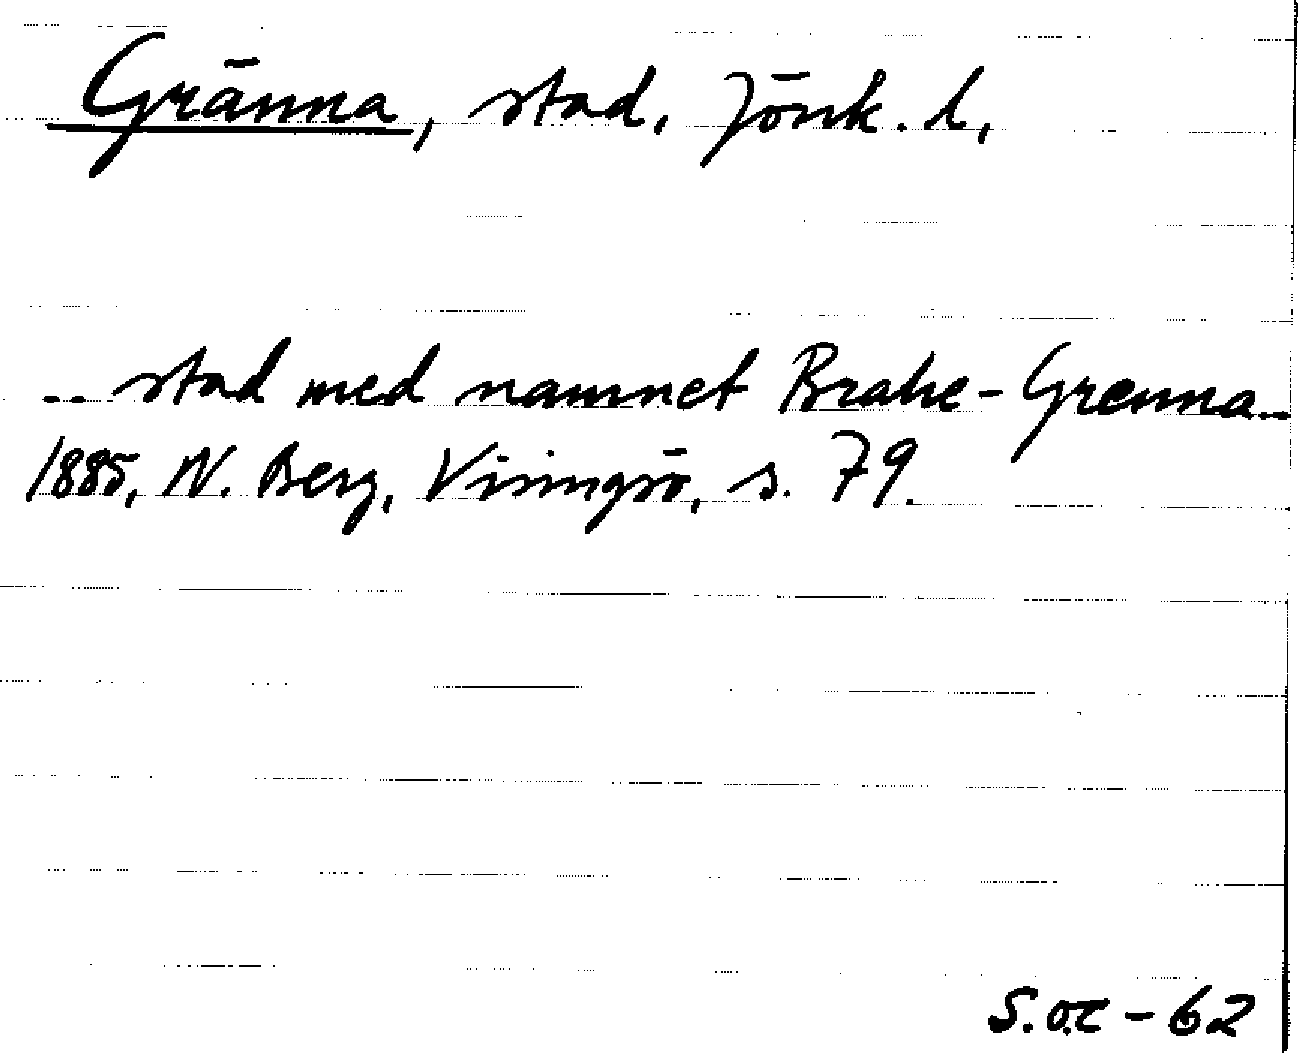 Gränna, stad, Jönk. l,
.. stad med namnet Brahe-Grenna..
1885, N. Berg, Visingsö, s. 79.
S.O.C - 62